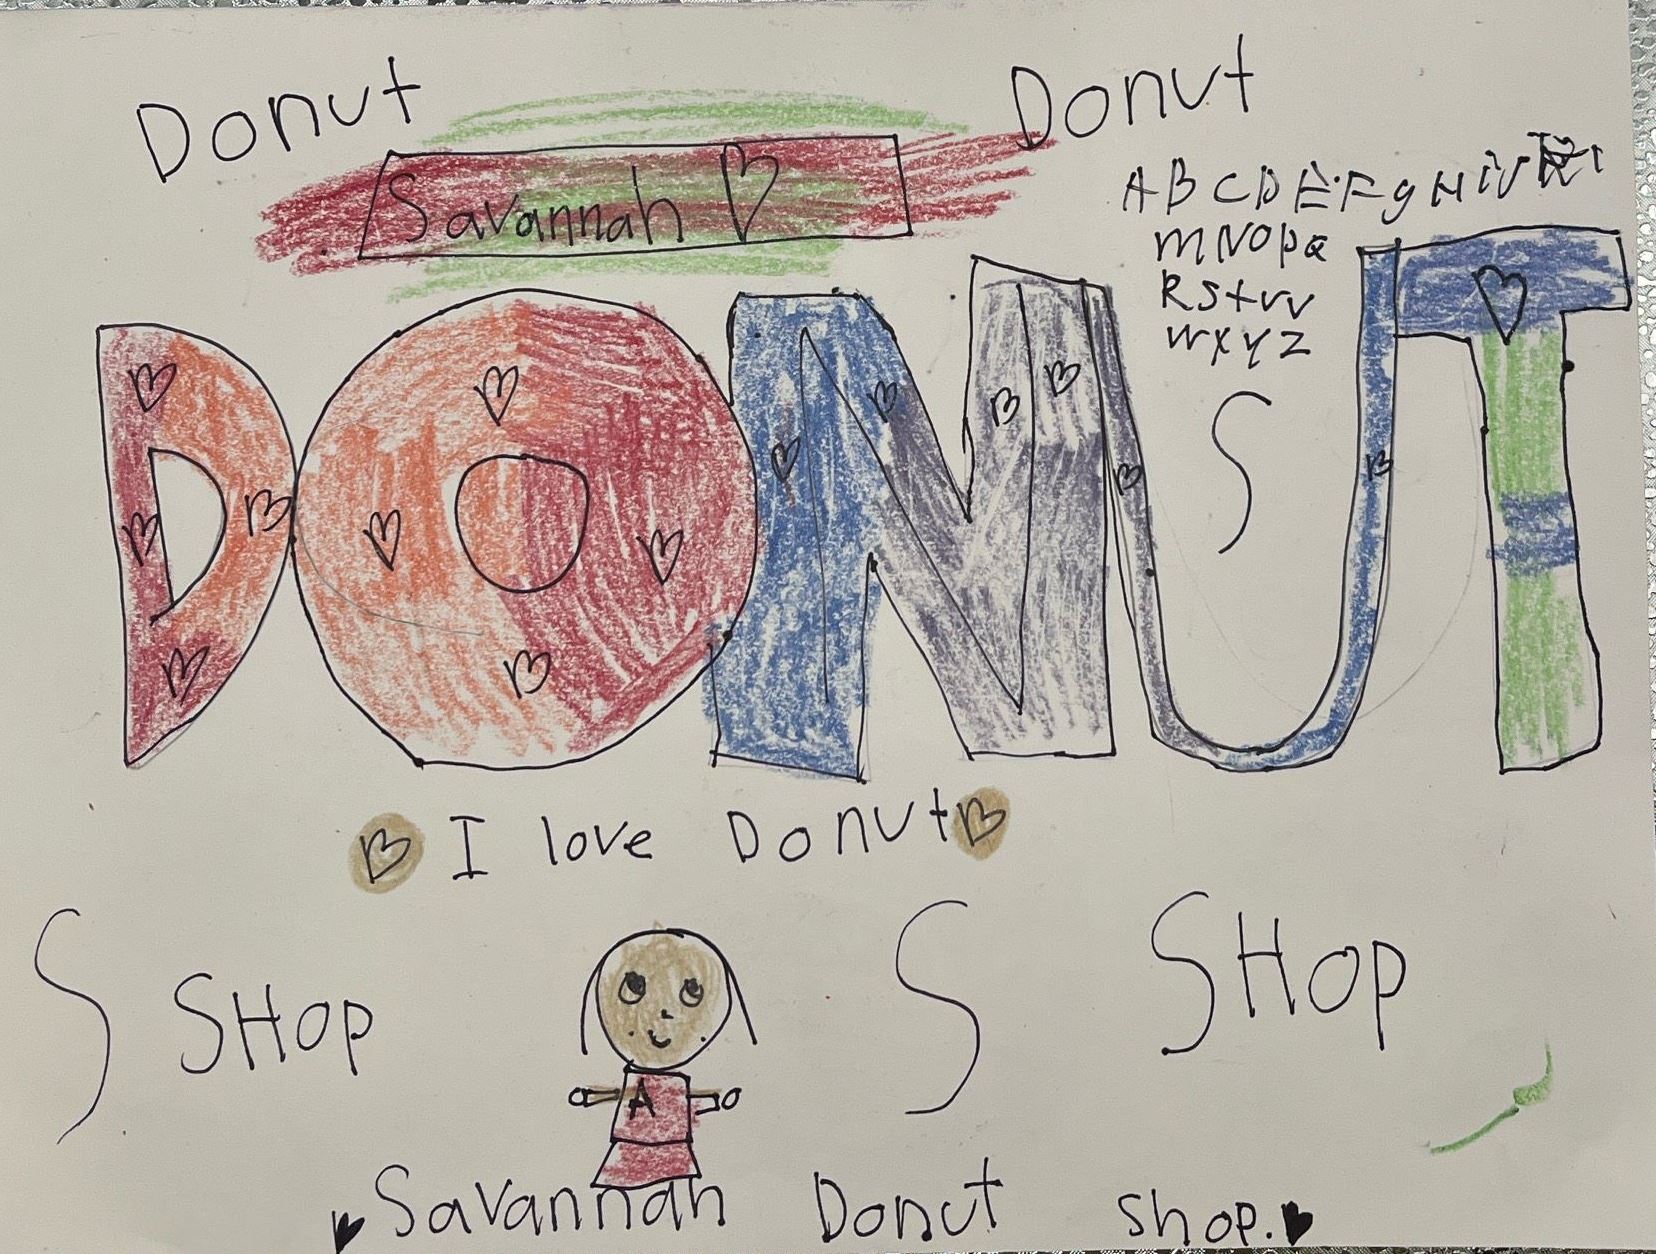 Donut Donut
Savannah
A B C D E F g H i J
m N O p Q
R S t u v
w x y z
DONUT
S
I love Donut
S SHOP S SHOP
A
Savannah Donut shop.